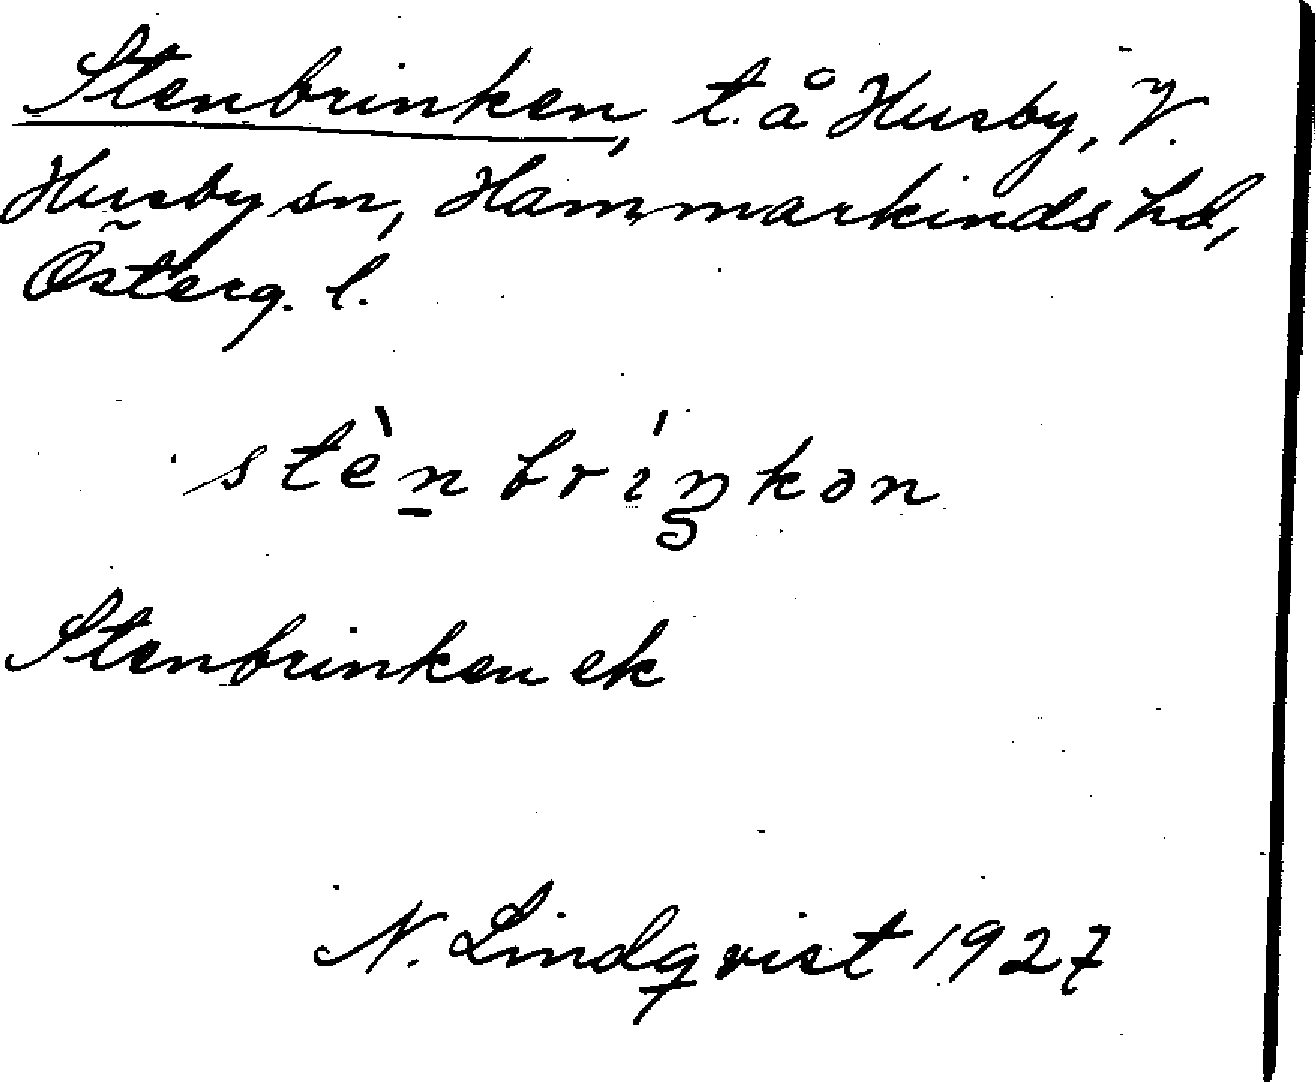 Stenbrinken, t. å Husby, V.
Husby sn, Hammarkinds hd,
Österg. l.
stèn bríŋkən
Stenbrinken ek
N. Lindqvist 1927